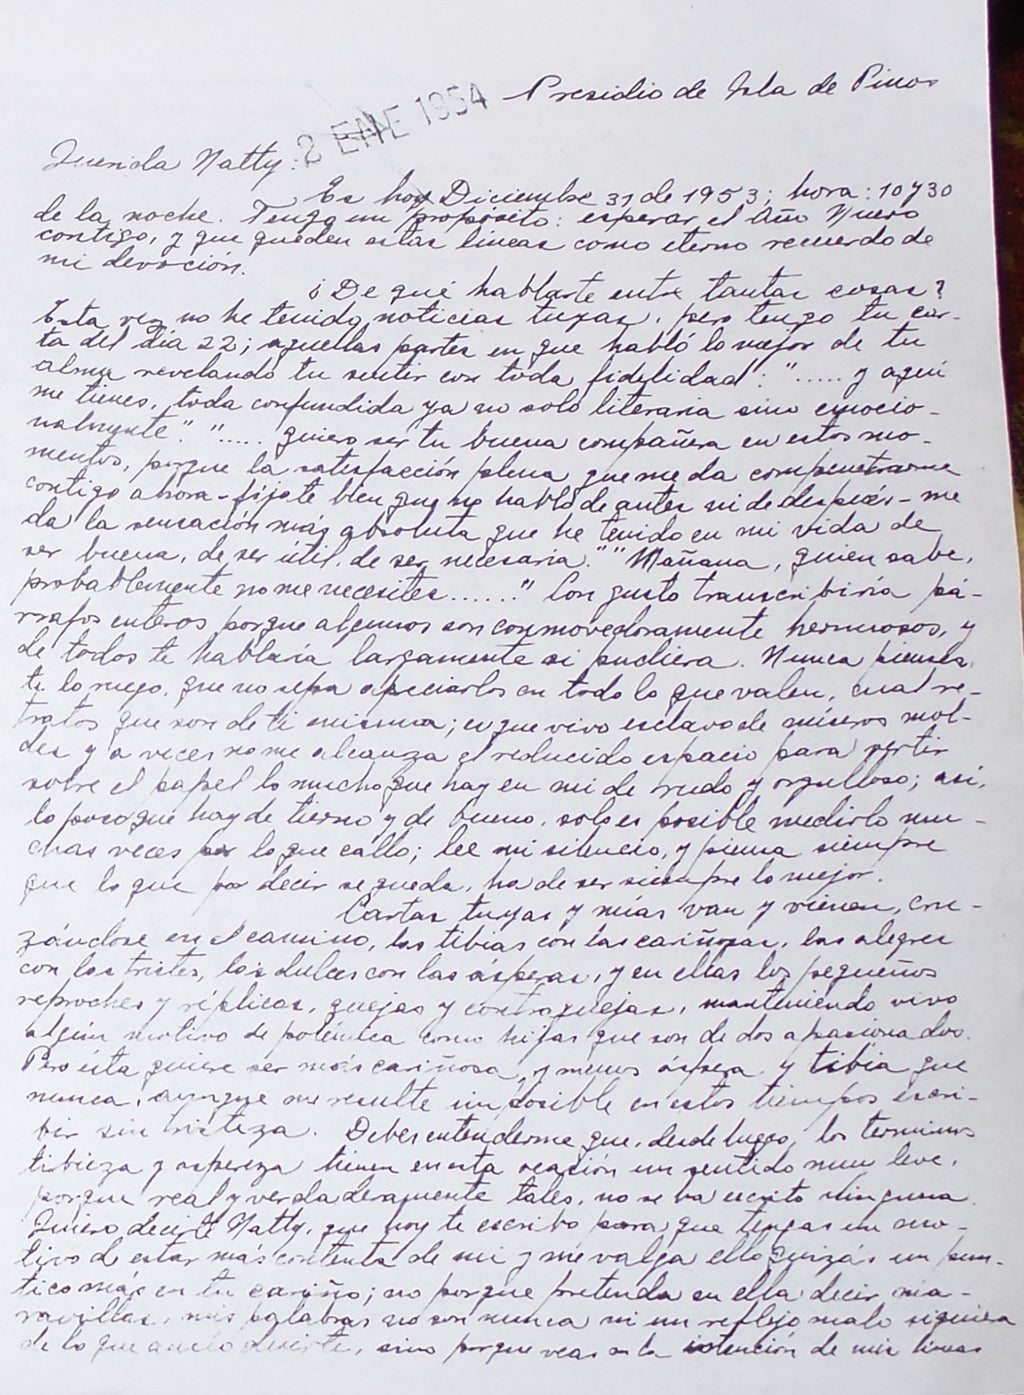 Presidio de Isla de Pinos
2 ENE 1954
Querida Natty:
Es hoy Diciembre 31 de 1953; hora: 10 y 30
de la noche. Tengo un propósito: esperar el Año Nuevo
contigo, y que queden estas líneas como eterno recuerdo de
mi devoción.
¿De qué hablarte entre tantas cosas?
Esta vez no he tenido noticias tuyas, pero tengo tu car-
ta del día 22; aquellas partes en que habló lo mejor de tu
alma revelando tu sentir con toda fidelidad: "..... y aquí
me tienes, toda confundida ya no solo literaria sino emocio-
nalmente." "..... quiero ser tu buena compañera en estos mo-
mentos, porque la satisfacción plena que me da compenetrarme
contigo ahora - fíjate bien que no hablo de antes ni de después - me
da la sensación más absoluta que he tenido en mi vida de
ser buena, de ser útil, de ser necesaria." "Mañana, quien sabe,
probablemente no me necesites......" Con gusto transcribiría pá-
rrafos enteros porque algunos son conmovedoramente hermosos, y
de todos te hablaría largamente si pudiera. Nunca pienses,
te lo ruego, que no sepa apreciarlos en todo lo que valen, cual re-
tratos que son de ti misma; es que vivo esclavo de míseros mol-
des y a veces no me alcanza el reducido espacio para vertir
sobre el papel lo mucho que hay en mi de rudo y orgulloso; así,
lo poco que hay de tierno y de bueno, solo es posible medirlo mu-
chas veces por lo que callo; lee mi silencio, y piensa siempre
que lo que por decir se queda, ha de ser siempre lo mejor.
Cartas tuyas y mías van y vienen, cru-
zándose en el camino, las tibias con las cariñosas, las alegres
con las tristes, las dulces con las ásperas, y en ellas los pequeños
reproches y réplicas, quejas y contraquejas, manteniendo vivo
algún motivo de polémica como hijas que son de dos apasionados.
Pero ésta quiere ser más cariñosa, y menos áspera y tibia que
nunca, aunque me resulte imposible en estos tiempos escri-
bir sin tristeza. Debes entenderme que, desde luego, los términos
tibieza y aspereza tienen en esta ocasión un sentido muy leve,
porque real y verdaderamente tales, no se ha escrito ninguna.
Quiero decirte Natty, que hoy te escribo para que tengas un mo-
tivo de estar más contenta de mi y me valga ello quizás un pun-
tico más en tu cariño; no porque pretenda en ella decir ma-
ravillas, mis palabras no son nunca ni un reflejo malo siquiera
de lo que ansío decirte, sino porque veas en la intención de mis líneas